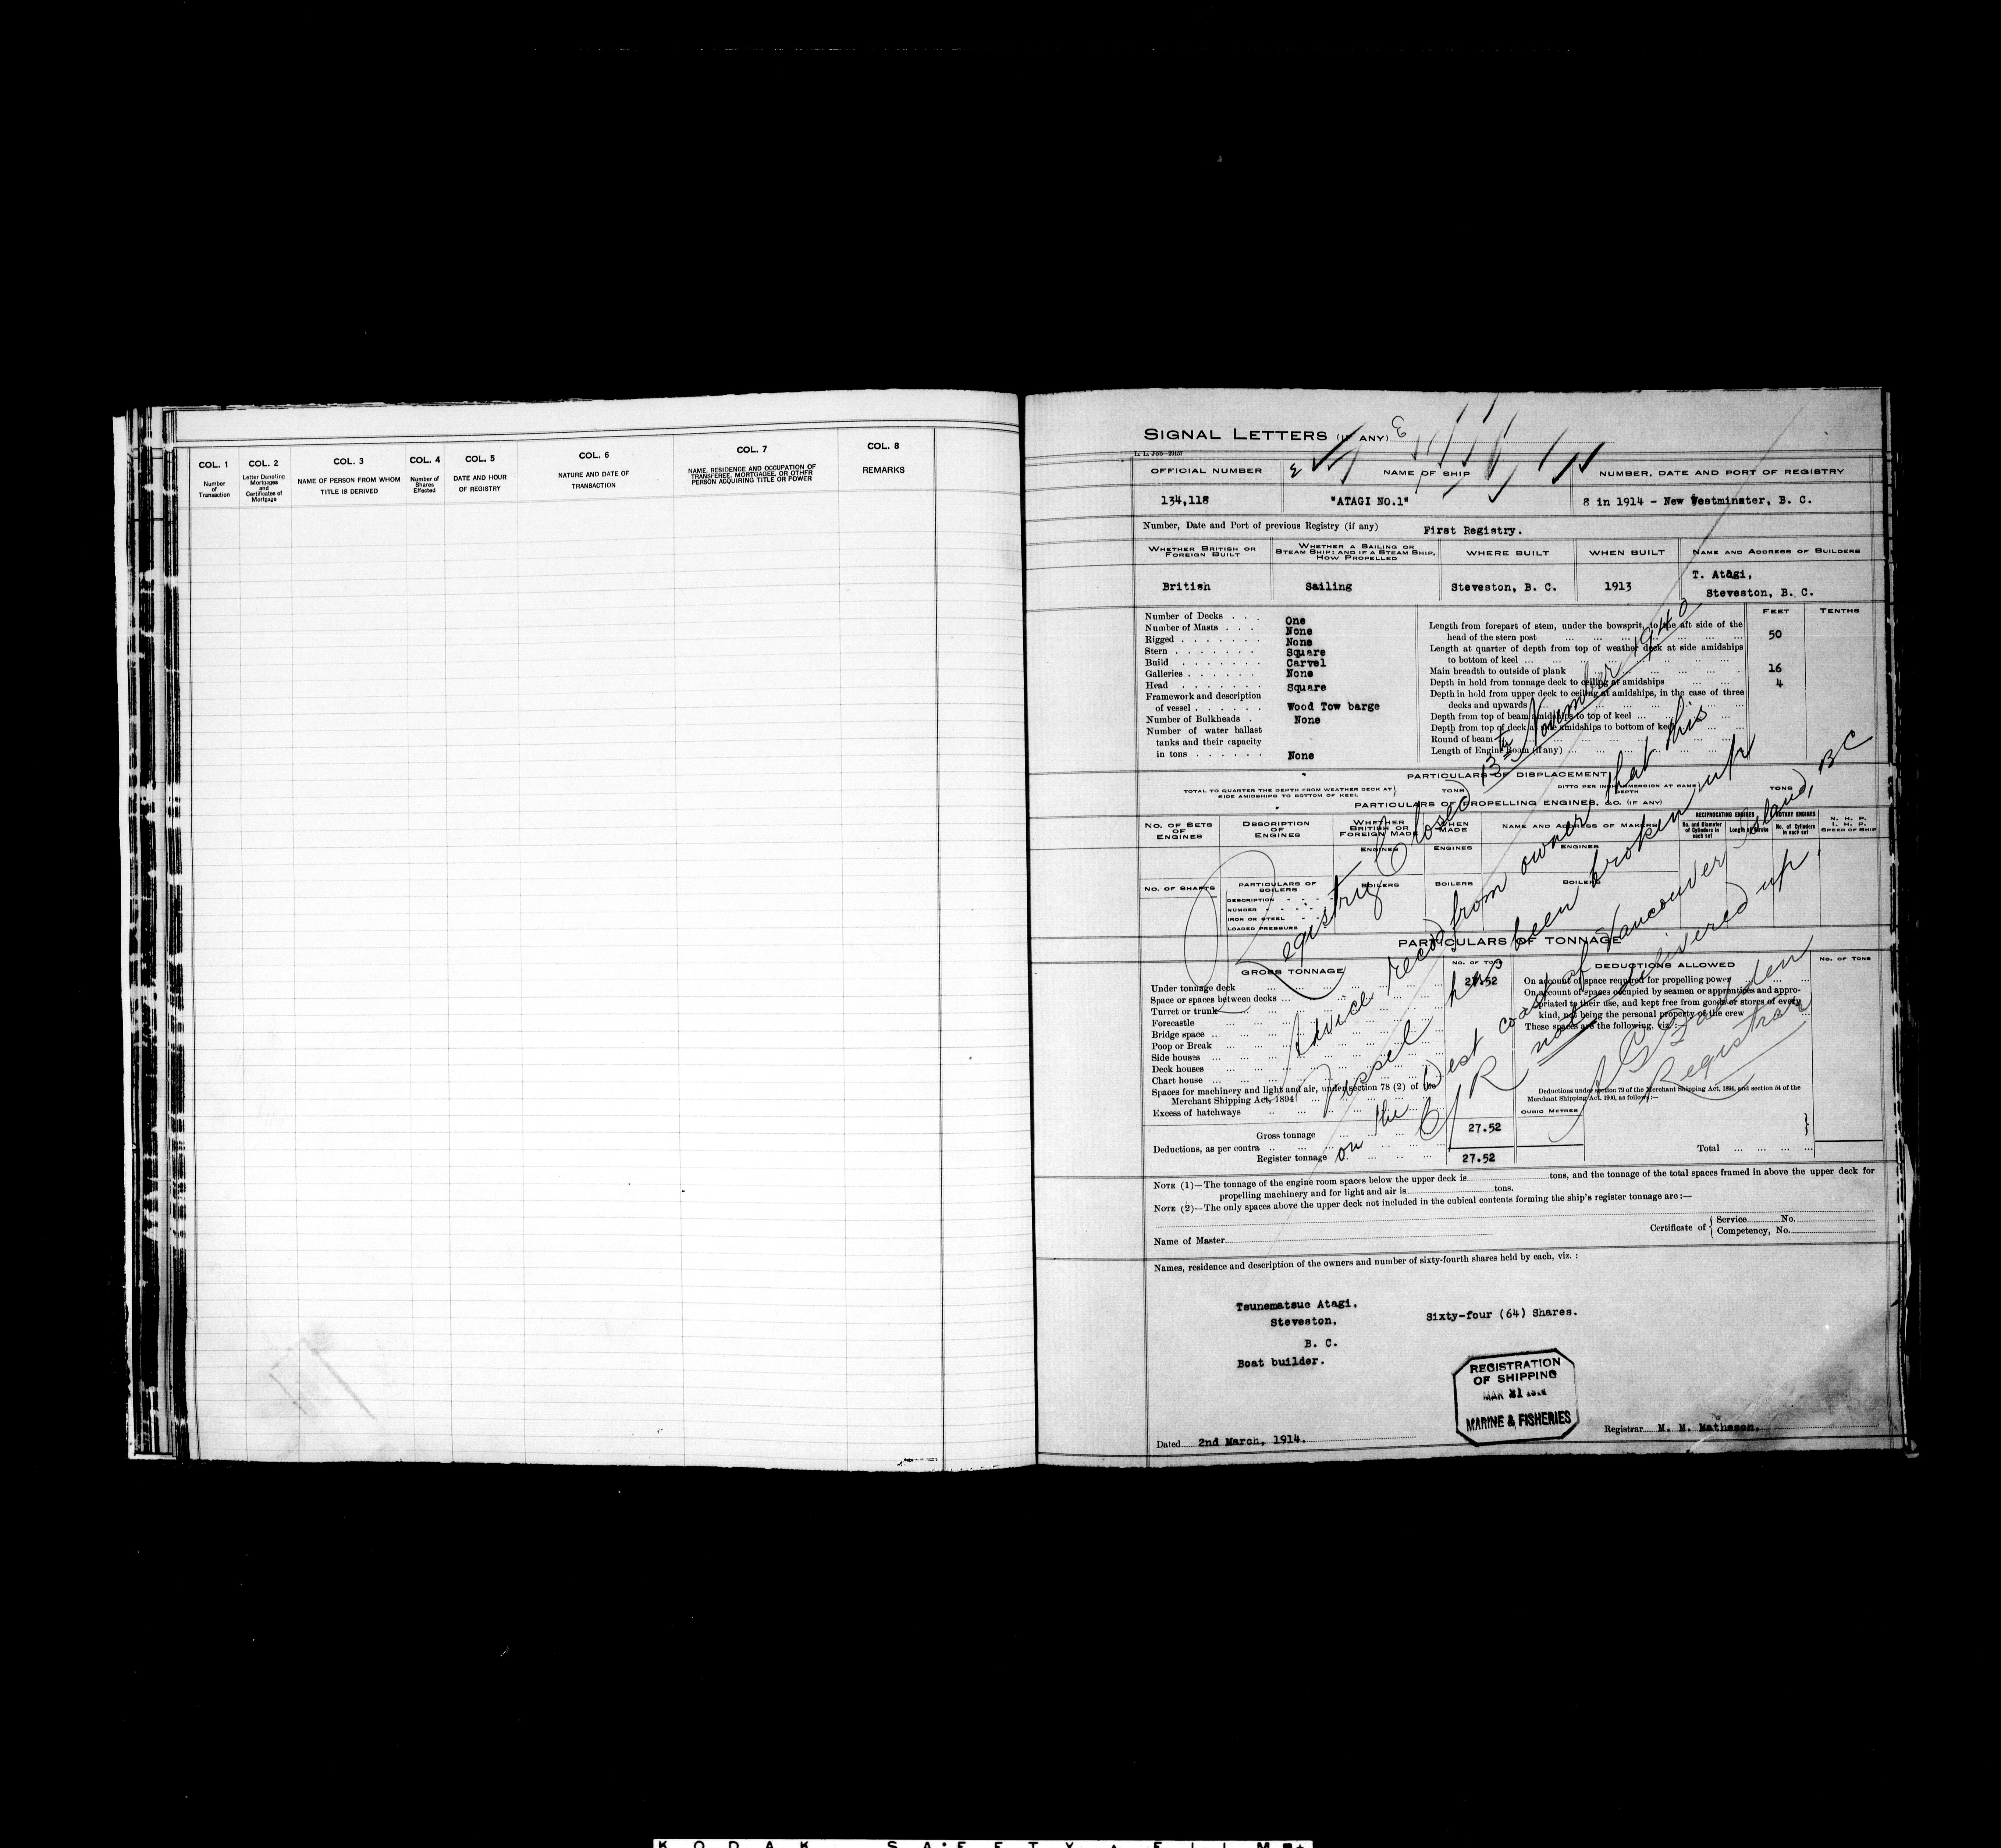 COL. 1
Number
of
Transaction
COL. 2
Letter Denoting
Mortgages
and
Certificates of
Mortgage
COL. 3
NAME OF PERSON FROM WHOM
TITLE IS DERIVED
COL. 4
Number of
Shares
Effected
COL. 5
DATE AND HOUR
OF REGISTRY
COL. 6
NATURE AND DATE OF
TRANSACTION
COL. 7
NAME, RESIDENCE AND OCCUPATION OF
TRANSFEREE, MORTGAGEE, OR OTHER
PERSON ACQUIRING TITLE OR POWER
COL. 8
REMARKS
SIGNAL LETTERS (IF ANY)
OFFICIAL NUMBER
NAME OF SHIP
NUMBER, DATE AND PORT OF REGISTRY
134,118
"ATAGI NO.1"
8 in 1914 - New Westminster, B. C.
Number, Date and Port of previous Registry (if any) First Registry.
WHETHER BRITISH OR
FOREIGN BUILT
WHETHER A SAILING OR
STEAM SHIP; AND IF A STEAM SHIP,
HOW PROPELLED
WHERE BUILT
WHEN BUILT
NAME AND ADDRESS OF BUILDERS
British
Sailing
Steveston, B. C.
1913
T. Atagi,
Steveston, B. C.
Number of Decks . . . One
Number of Masts . . . . None
Rigged . . . . . . . None
Stern . . . . . . . . Square
Build . . . . . . . Carvel
Galleries . . . . . . None
Head . . . . . . . Square
Framework and description
of vessel . . . . . . Wood Tow barge
Number of Bulkheads . None
Number of water ballast
tanks and their capacity
in tons . . . . . . None
FEET
TENTHS
Length from forepart of stem, under the bowsprit, to the aft side of the
head of the stern post 50
Length at quarter of depth from top of weather deck at side amidships
to bottom of keel
Main breadth to outside of plank 16
Depth in hold from tonnage deck to ceiling at amidships 4
Depth in hold from upper deck to ceiling at amidships, in the case of three
decks and upwards
Depth from top of beam amidships to top of keel
Depth from top of deck at side amidships to bottom of keel
Round of beam
Length of Engine Room (if any)
PARTICULARS OF DISPLACEMENT
TOTAL TO QUARTER THE DEPTH FROM WEATHER DECK AT
SIDE AMIDSHIPS TO BOTTOM OF KEEL
TONS
DITTO PER INCH IMMERSION AT SAME
DEPTH
TONS
PARTICULARS OF PROPELLING ENGINES, &C. (IF ANY)
NO. OF SETS
OF
ENGINES
DESCRIPTION
OF
ENGINES
WHETHER
BRITISH OR
FOREIGN MADE
WHEN
MADE
NAME AND ADDRESS OF MAKERS
RECIPROCATING ENGINES
No. and Diameter
of Cylinders in
each set
Length of Stroke
ROTARY ENGINES
No. of Cylinders
in each set
N. H. P.
I. H. P.
SPEED OF SHIP
ENGINES
ENGINES
ENGINES
NO. OF SHAFTS
PARTICULARS OF
BOILERS
BOILERS
BOILERS
BOILERS
DESCRIPTION
NUMBER
IRON OR STEEL
LOADED PRESSURE
PARTICULARS OF TONNAGE
GROSS TONNAGE
NO. OF TONS
DEDUCTIONS ALLOWED
NO. OF TONS
Under tonnage deck 27.52
Space or spaces between decks
Turret or trunk
Forecastle
Bridge space
Poop or Break
Side houses
Deck houses
Chart house
Spaces for machinery and light and air, under section 78 (2) of the
Merchant Shipping Act, 1894
Excess of hatchways
Gross tonnage 27.52
Deductions, as per contra
Register tonnage 27.52
On account of space required for propelling power
On account of spaces occupied by seamen or apprentices and appro-
priated to their use, and kept free from goods or stores of every
kind, not being the personal property of the crew
These spaces are the following, viz:—
Deductions under section 79 of the Merchant Shipping Act, 1894, and section 54 of the
Merchant Shipping Act, 1906, as follows:—
CUBIC METRES
Total
Registry Closed 13th November 1940
Advice recd from owner that this
Vessel has been broken up
on the West coast of Vancouver Island, BC
C/R not delivered up.
Registrar
NOTE (1)—The tonnage of the engine room spaces below the upper deck is tons, and the tonnage of the total spaces framed in above the upper deck for
propelling machinery and for light and air is tons.
NOTE (2)—The only spaces above the upper deck not included in the cubical contents forming the ship's register tonnage are:—
Name of Master
Certificate of { Service No.
Competency, No.
Names, residence and description of the owners and number of sixty-fourth shares held by each, viz. :
Tsunematsuc Atagi. Sixty-four (64) Shares.
Steveston.
B. C.
Boat builder.
REGISTRATION
OF SHIPPING
MAR 21
MARINE & FISHERIES
Dated 2nd March, 1914.
Registrar M. M. Matheson.
KODAK SAFETY FILM